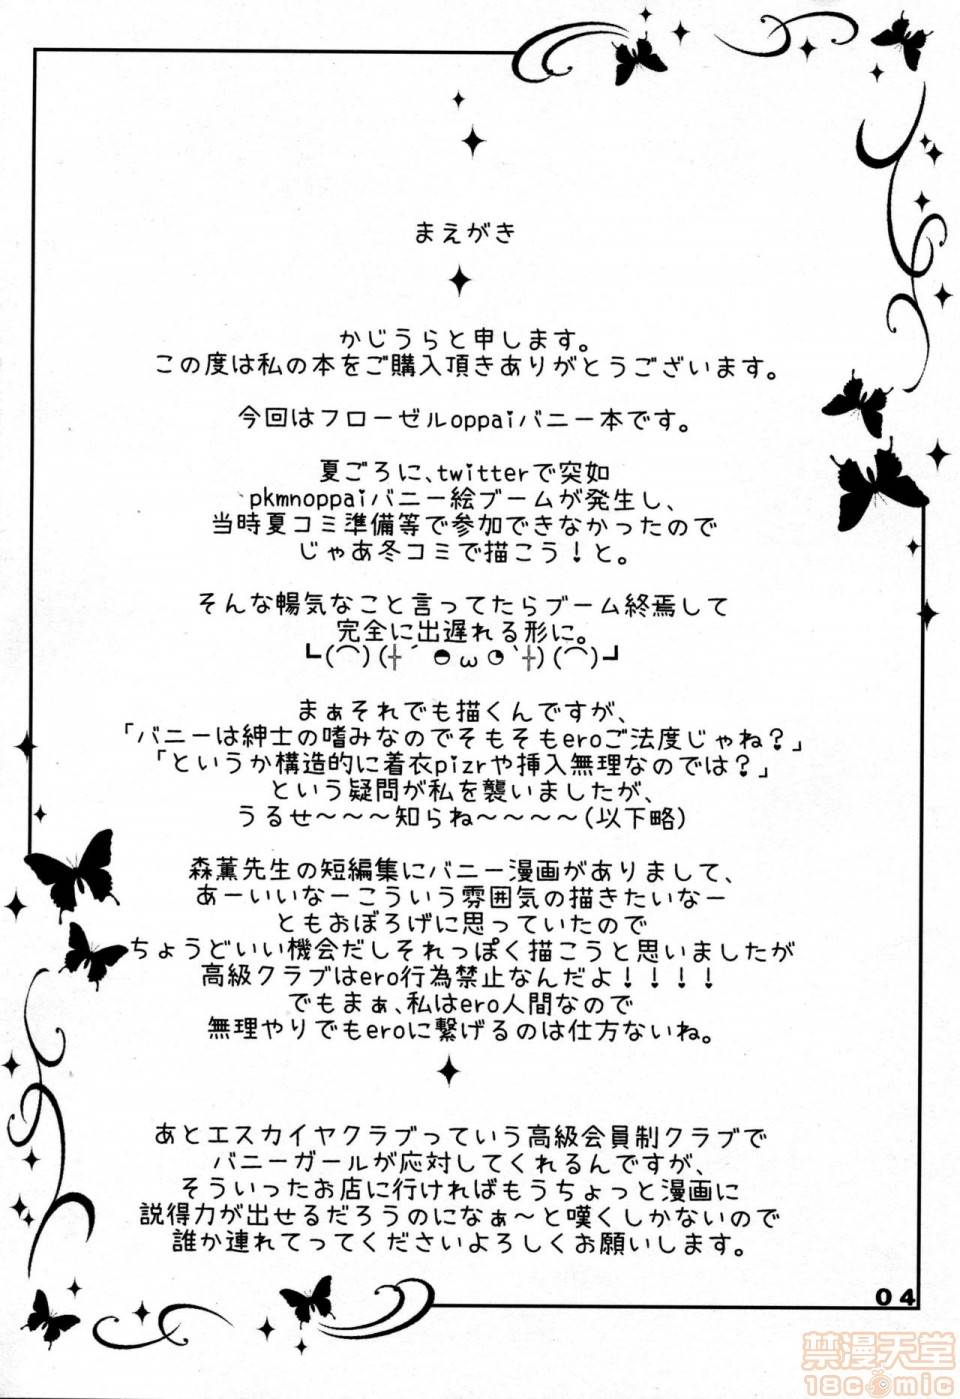 まえがき
かじうらと申します。
この度は私の本をご購入頂きありがとうございます。
今回はフローゼルoppaiバニー本です。
夏ごろに、twitterで突如
pkmnoppaiバニー絵ブームが発生し、
当時夏コミ準備等で参加できなかったので
じゃあ冬コミで描こう!と。
そんな暢気なこと言ってたらブーム終焉して
完全に出遅れる形に。
┗(⌒)(╬´◓ω◔`╬)(⌒)┛
まぁそれでも描くんですが、
「バニーは紳士の嗜みなのでそもそもeroご法度じゃね?」
「というか構造的に着衣pizrや挿入無理なのでは?」
という疑問が私を襲いましたが、
うるせ~~~知らね~~~~(以下略)
森薫先生の短編集にバニー漫画がありまして、
あーいいなーこういう雰囲気の描きたいなー
ともおぼろげに思っていたので
ちょうどいい機会だしそれっぽく描こうと思いましたが
高級クラブはero行為禁止なんだよ!!!!
でもまぁ、私はero人間なので
無理やりでもeroに繋げるのは仕方ないね。
あとエスカイヤクラブっていう高級会員制クラブで
バニーガールが応対してくれるんですが、
そういったお店に行ければもうちょっと漫画に
説得力が出せるだろうのになぁ~と嘆くしかないので
誰か連れてってくださいよろしくお願いします。
04
禁漫天堂
18comic